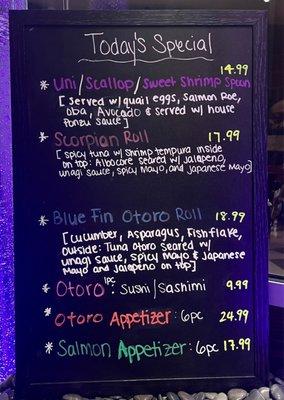 Today's Special
14.99
* Uni/Scallop/Sweet Shrimp Spoon
[Served w/ quail eggs, Salmon Roe,
Oba, Avocado & served w/ house
Ponzu sauce]
* Scorpian Roll 17.99
[Spicy tuna w/ shrimp tempura inside
on top: Albocore seared w/ jalapeño,
unagi sauce, spicy mayo, and Japanese Mayo]
* Blue Fin Otoro Roll 18.99
[Cucumber, Asparagus, Fishflake,
outside: Tuna otoro seared w/
unagi sauce, spicy mayo & Japanese
Mayo and Jalapeño on top]
* Otoro 1pc: Sushi/Sashimi 9.99
* Otoro Appetizer: 6pc 24.99
* Salmon Appetizer: 6pc 17.99